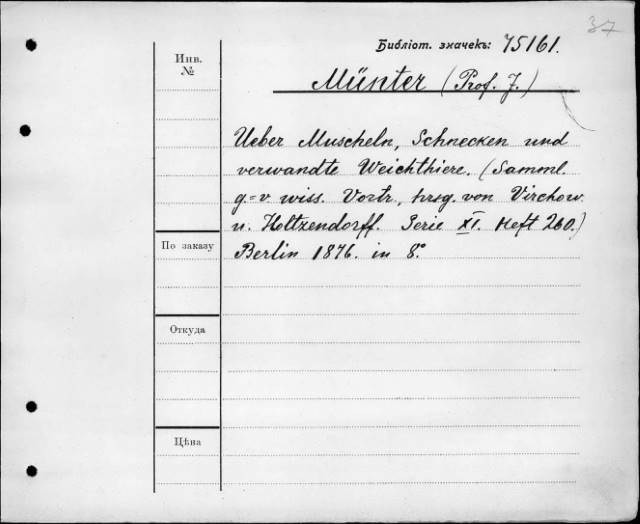 37
Библіот. значекъ: 75161.
Инв.
№
Münter (Prof. J.)
Ueber Muscheln, Schnecken und
verwandte Weichthiere. (Samml.
g=v wiss. Vortr., hrsg. von Virchow
u. Holtzendorff. Serie XI. Heft 260.)
Berlin 1876. in 8°
По заказу
Откуда
Цѣна